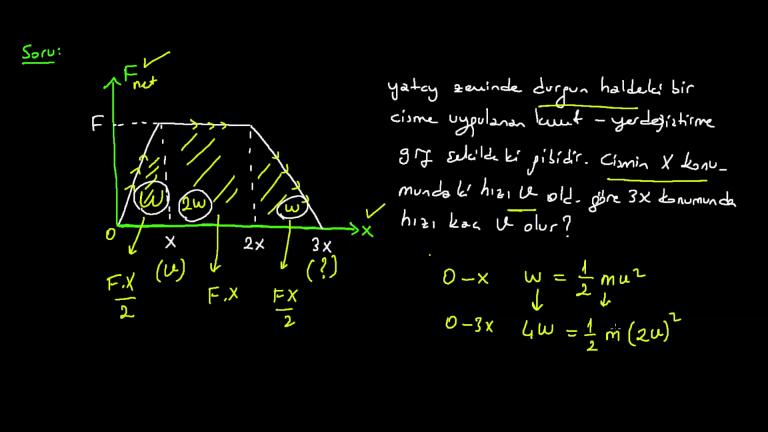 Soru:
F net
F
W 2W W
0 x 2x 3x x
(v) (?)
F.x/2 F.x Fx/2
yatay zeminde durgun haldeki bir
cisme uygulanan kuvvet - yerdeğiştirme
grf şekildeki gibidir. Cismin X konu-
mundaki hızı v old. göre 3x konumunda
hızı kaç v olur?
0-x W = 1/2 mv²
0-3x 4W = 1/2 m (2v)²